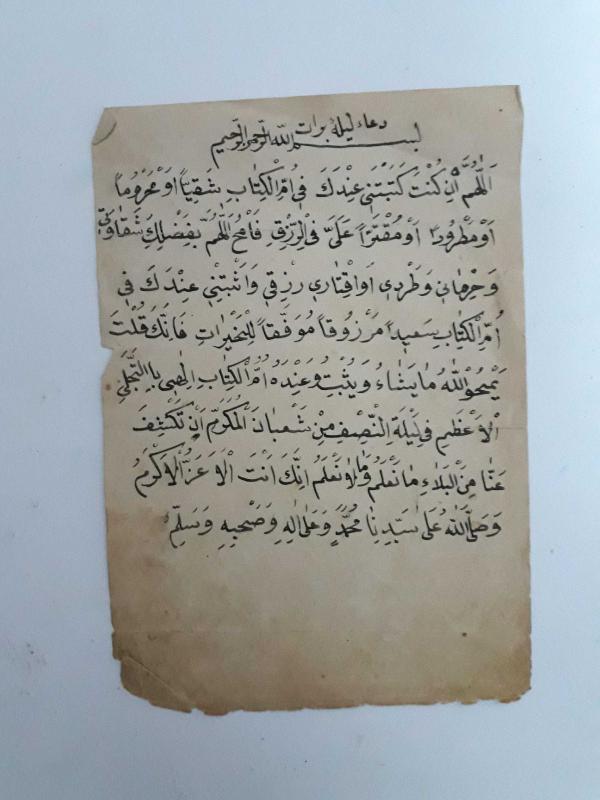 دعاء ليلة برات
بسم الله الرحمن الرحيم
اَللّٰهُمَّ اِنْ كُنْتَ كَتَبْتَنِى عِنْدَكَ فِى اُمِّ الْكِتَابِ شَقِيًّا اَوْ مَحْرُومًا
اَوْ مَطْرُودًا اَوْ مُقْتَرًا عَلَىَّ فِى الرِّزْقِ فَامْحُ اللّٰهُمَّ بِفَضْلِكَ شَقَاوَتِى
وَحِرْمَانِى وَطَرْدِى اَوِاقْتِارِى رِزْقِى وَاَثْبِتْنِى عِنْدَكَ فِى
اُمِّ الْكِتَابِ سَعِيدًا مَرْزُوقًا مُوَفَّقًا لِلْخَيْرَاتِ فَاِنَّكَ قُلْتَ
يَمْحُو اللّٰهُ مَا يَشَاءُ وَيُثْبِتُ وَعِنْدَهُ اُمُّ الْكِتَابِ اِلٰهِى بِالتَّجَلِّى
الْاَعْظَمِ فِى لَيْلَةِ النِّصْفِ مِنْ شَعْبَانَ الْمُكَرَّمِ اَنْ تَكْشِفَ
عَنَّا مِنَ الْبَلَاءِ مَا نَعْلَمُ وَمَا لَا نَعْلَمُ اِنَّكَ اَنْتَ الْاَعَزُّ الْاَكْرَمُ
وَصَلَّى اللّٰهُ عَلَى سَيِّدِنَا مُحَمَّدٍ وَعَلَى اٰلِهِ وَصَحْبِهِ وَسَلِّمْ